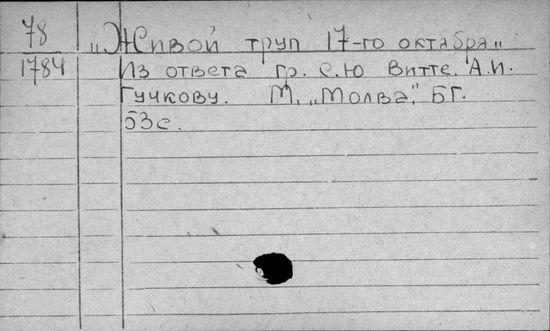 78
1784
„Живой труп 17-го октября„
Из ответа гр. С.Ю Витте. А.И.
Гучкову. М. „Молва", БГ.
53с.